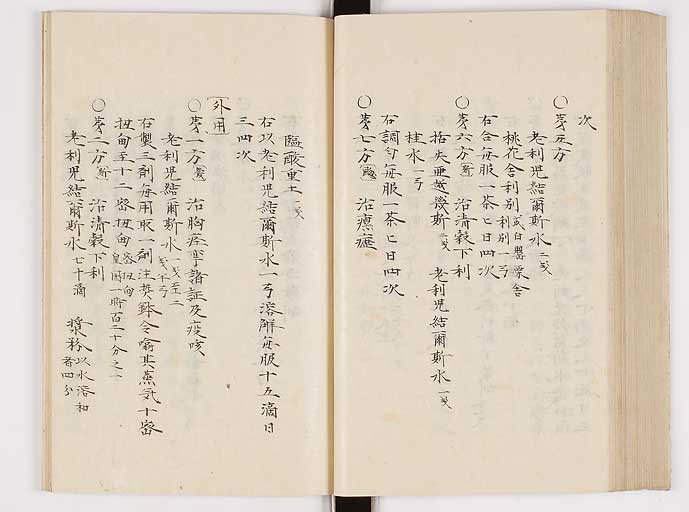 次
○第五方
老利児結爾斯水 二戔
桃花舎利別 或白罌粟舎利別 一弓
右合毎服一茶匕日四次
○第六方 治清穀下利
括失亜越幾斯 二戔 老利児結爾斯水 一戔
桂水 一弓
右調匀毎服一茶匕日四次
○第七方 治瘰癧
塩酸重土 一戔
右以老利児結爾斯水一弓溶解毎服十五滴日
三四次
外用
○第一方 治胸痙攣諸証及疫咳
老利児結爾斯水 一戔至二戔半弓
右製三剤毎用取一剤注 令嗡其蒸気十密
扭甸至十二密扭甸 密扭甸皇国一時百二十分之一
○第二方 治清穀下利
老利児結爾斯水 七十滴 漿粉 以水溶和者四分